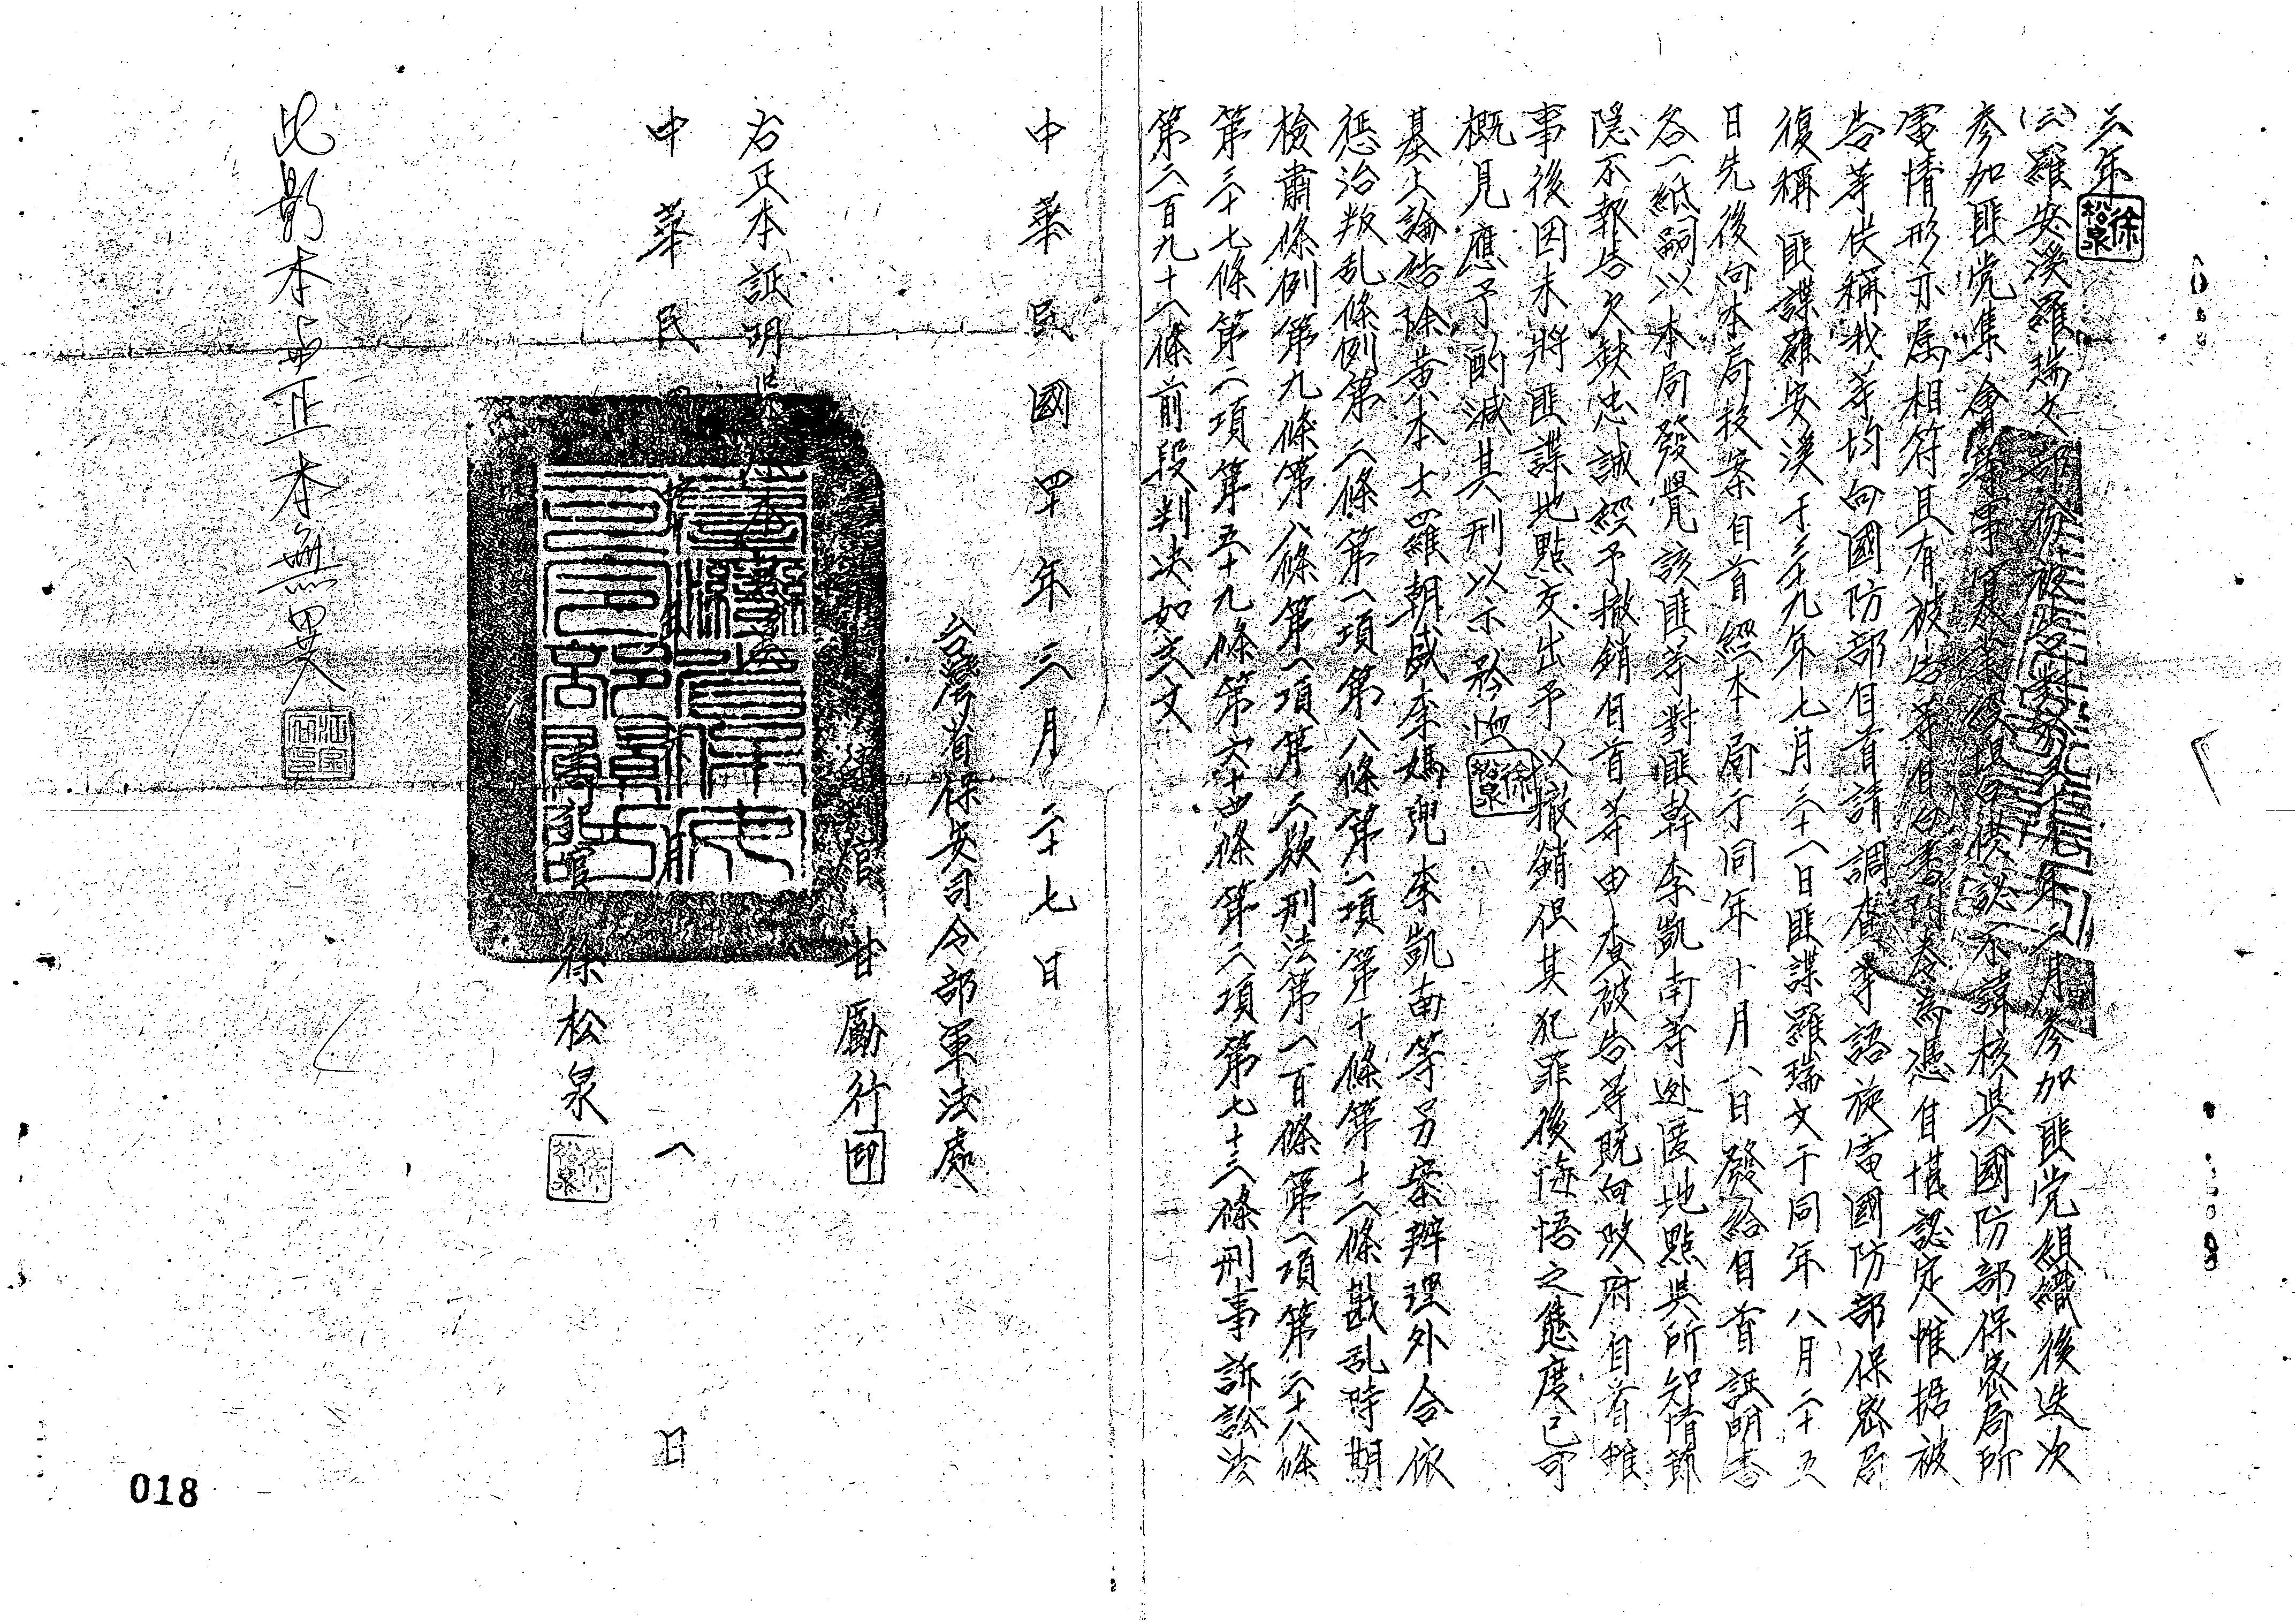 三年
徐松泉
(三)羅安溪羅瑞文部份被告對於三十八年三月參加匪党組織後迭次
參加匪党集會等事實業經坦白供認不諱核與國防部保密局所
電情形亦属相符且有被告等自白書附卷為憑自堪認定惟据被
告等供稱我等均向國防部自首請調查等語旋電國防部保密局
復稱匪諜羅安溪于三十九年七月三十一日匪諜羅瑞文于同年八月二十五
日先後向本局投案自首經本局于同年十月一日發給自首証明書
各一紙嗣以本局發覺該匪等對匪幹李凱南等逃匿地點與所知情節
隱不報告欠缺忠誠經予撤銷自首等由查被告等既向政府自首雖
事後因未將匪諜地點交出予以撤銷但其犯罪後悔悟之態度已可
概見應予酌減其刑以示矜恤
徐松泉
基上論結除黄本士羅朝威李媽兜李凱南等另案辦理外合依
懲治叛乱條例第二條第一項第八條第一項第十條第十二條戡乱時期
檢肅條例第九條第八條第一項第二款刑法第一百條第一項第二十八條
第三十七條第二項第五十九條第六十四條第二項第七十三條刑事訴訟法
第二百九十一條前段判决如主文
中華民國四十年三月二十七日
台灣省保安司令部軍法處
官 甘勵行 印
右正本証明
中華民 八 日
徐松泉
徐松泉
此影本與正本無異
018